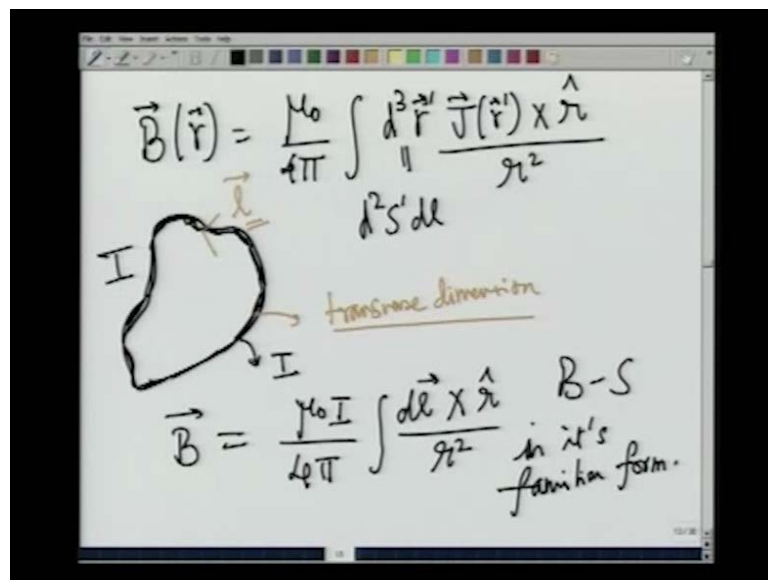 File Edit View Insert Actions Tools Help
B⃗(r⃗) = μ₀/4π ∫ d³r⃗' J⃗(r⃗') × r̂ / r²
||
d²s'dl
l⃗
I
transverse dimension
I
B⃗ = μ₀I/4π ∫ dl⃗ × r̂ / r²
B-S
in it's
familiar form.